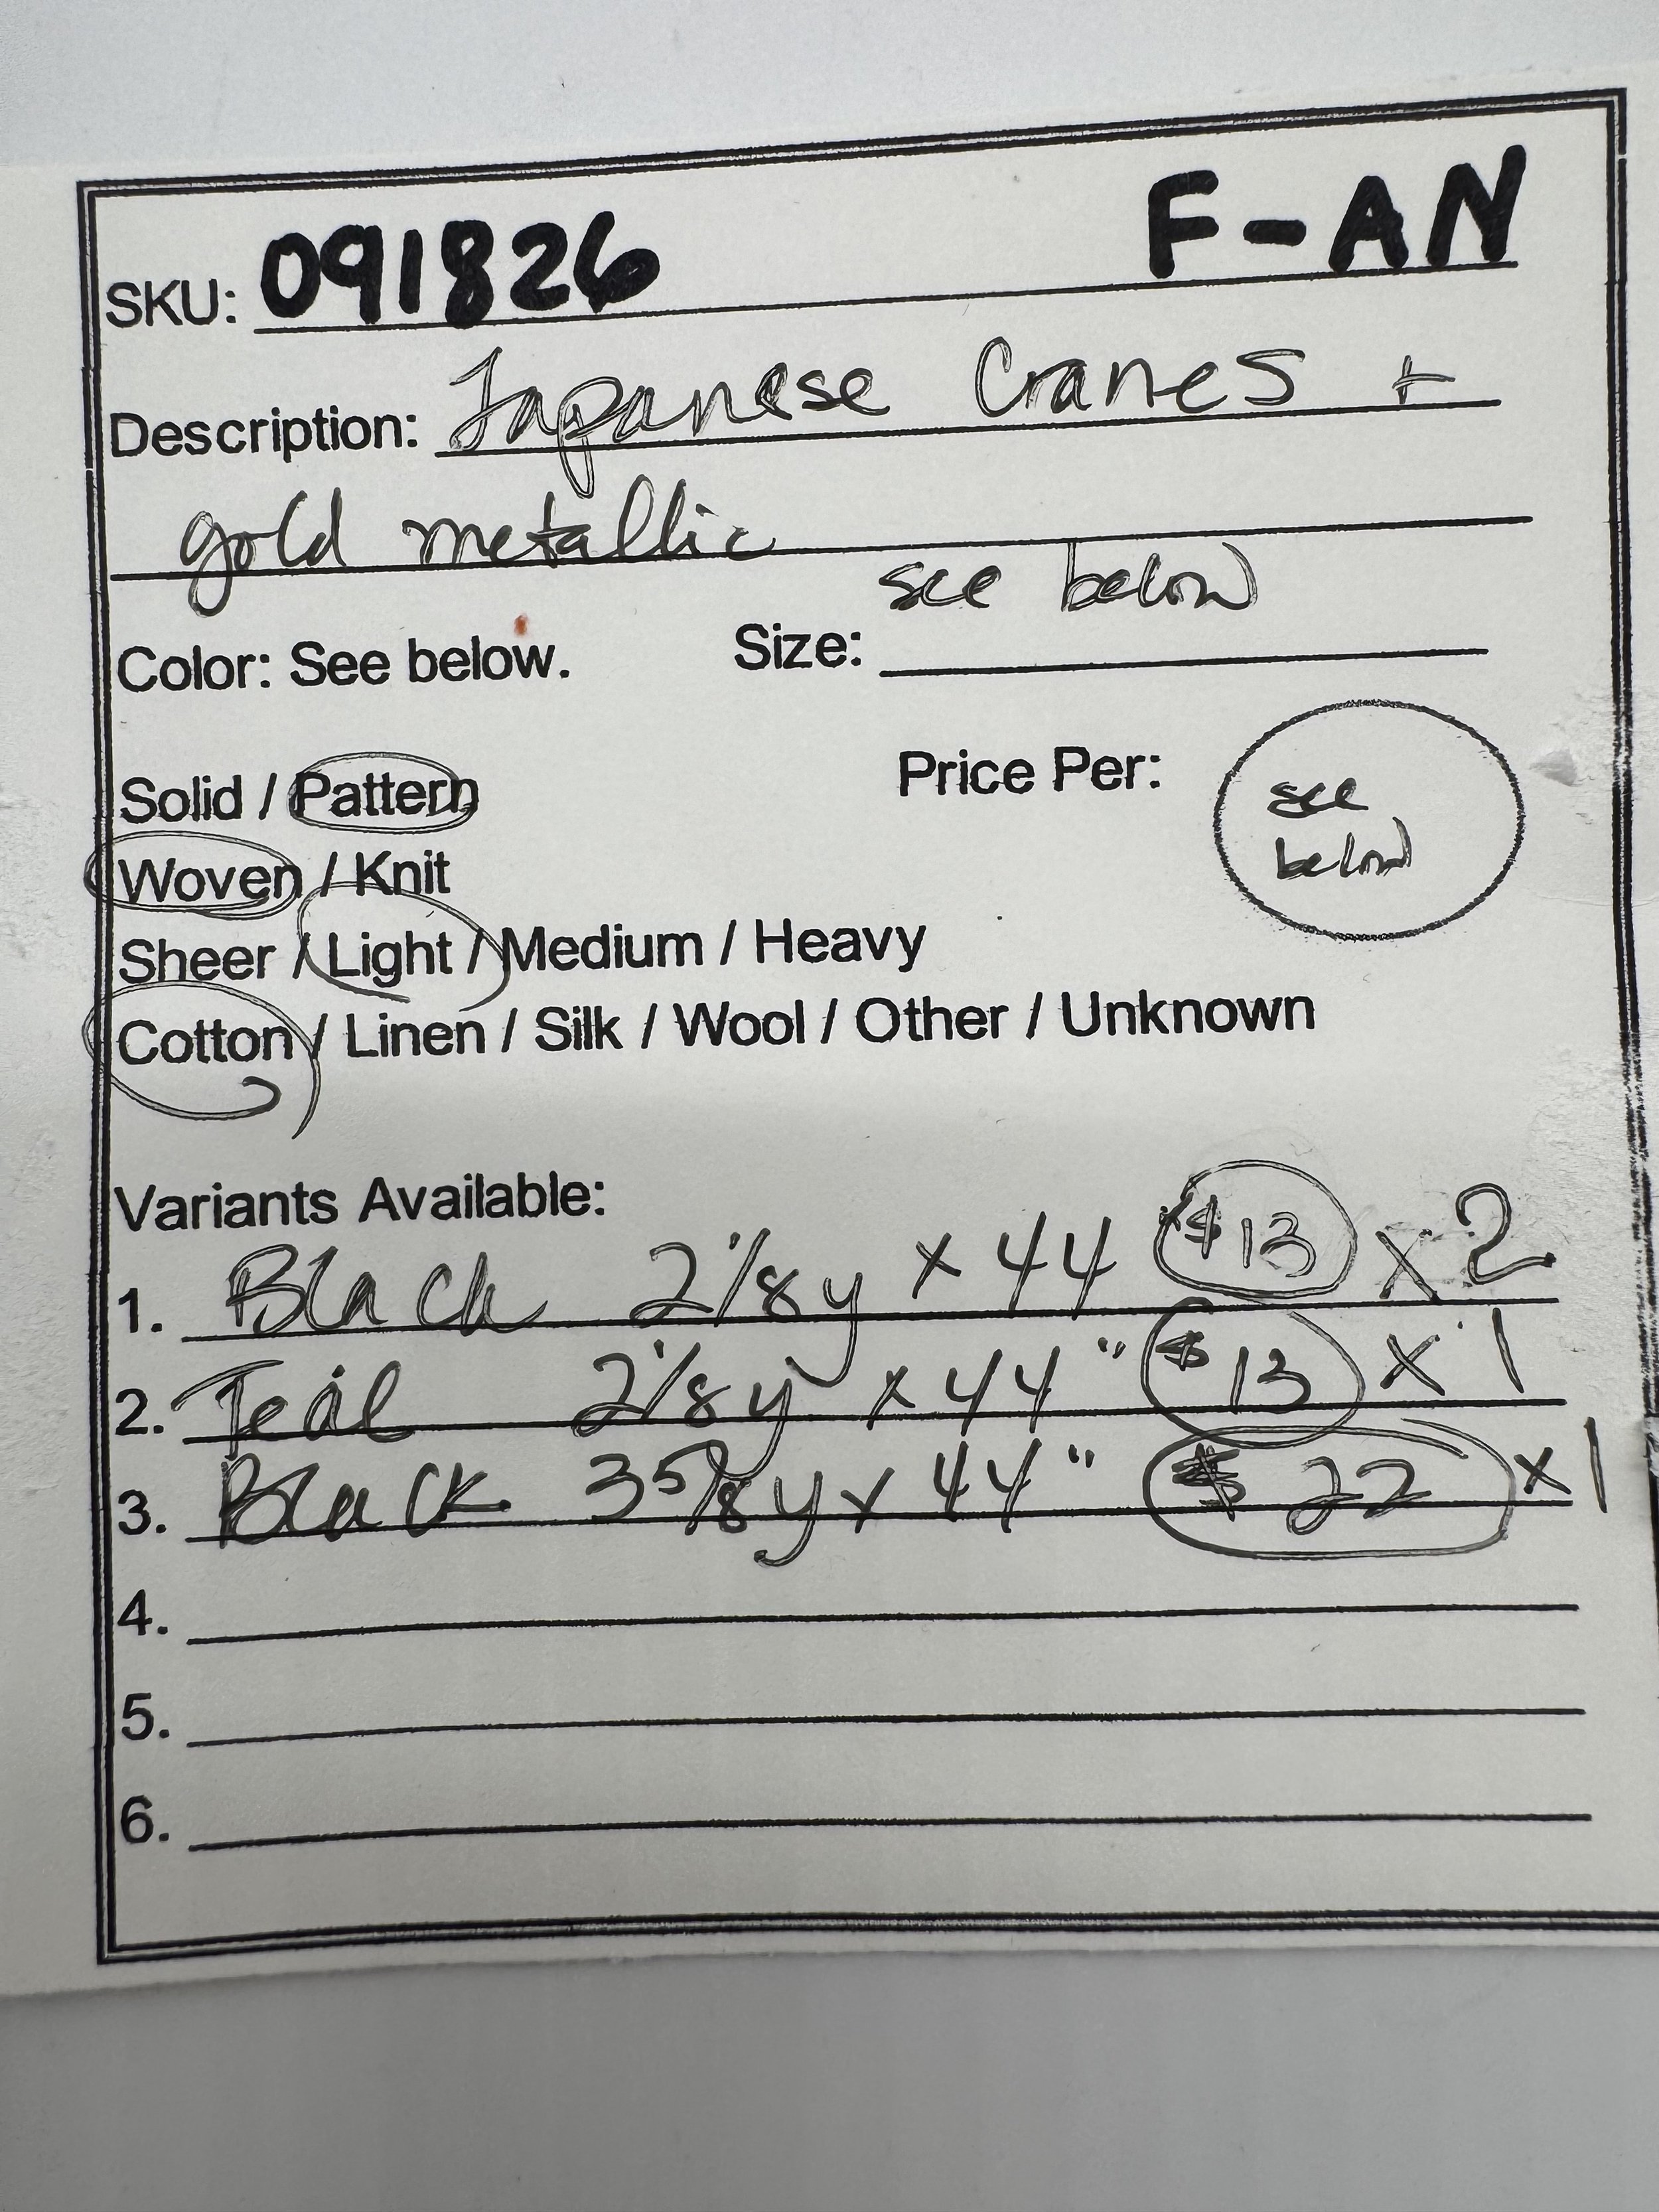 SKU: 091826 F-AN
Description: Japanese Cranes +
gold metallic
Color: See below. Size: see below
Solid / Pattern Price Per: see below
Woven / Knit
Sheer / Light / Medium / Heavy
Cotton / Linen / Silk / Wool / Other / Unknown
Variants Available:
1. Black 2 1/8y x 44 $13 x 2
2. Teal 2 1/8y x 44" $13 x 1
3. Black 3 5/8y x 44" $22 x 1
4.
5.
6.